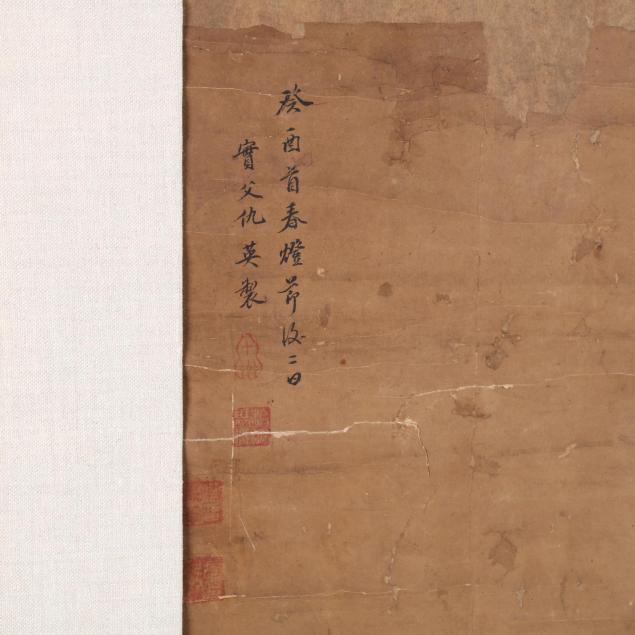 癸酉首春燈節後二日
實父仇英製
十洲